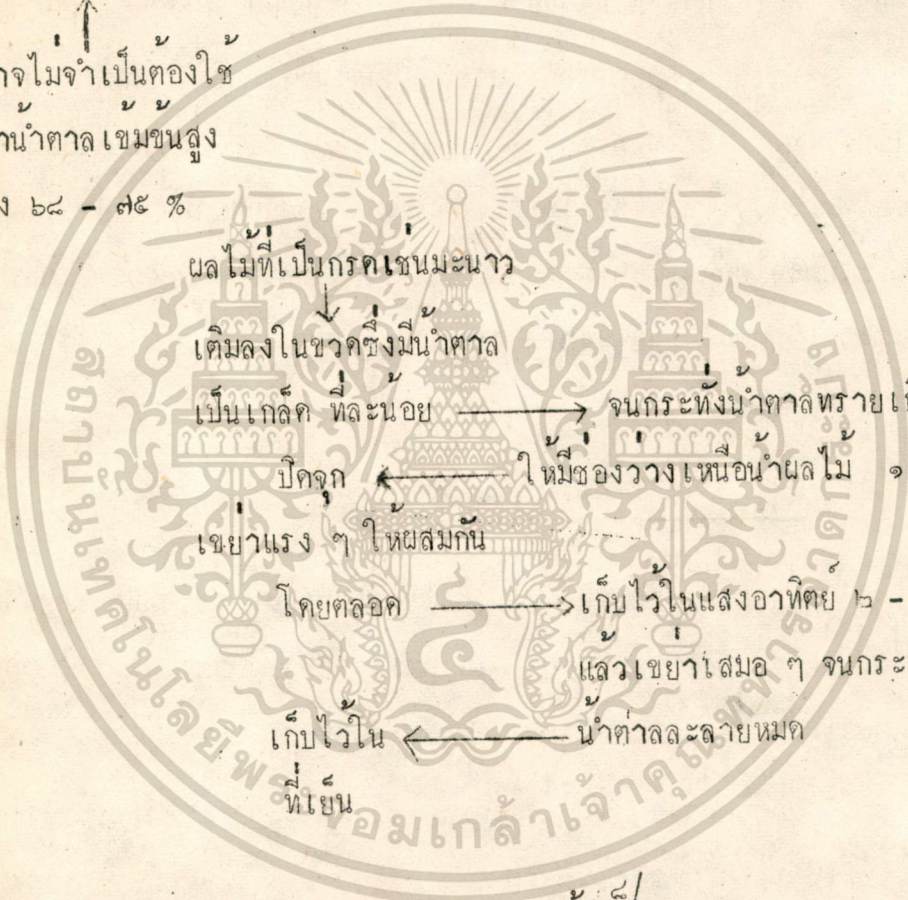 าจไม่จำเป็นต้องใช้
าน้ำตาลเข้มข้นสูง
ง ๖๘ - ๗๕ %
ผลไม้ที่เป็นกรดเช่นมะนาว
เติมลงในขวดซึ่งมีน้ำตาล
เป็นเกล็ด ที่ละน้อย จนกระทั่งน้ำตาลทราย
ปิดจุก ให้มีช่องว่างเหนือน้ำผลไม้ ๑
เขย่าแรง ๆ ให้ผสมกัน
โดยตลอด เก็บไว้ในแสงอาทิตย์ ๒ -
แล้วเขย่าเสมอ ๆ จนกระ
เก็บไว้ใน น้ำตาลละลายหมด
ที่เย็น
สถาบันเทคโนโลยีพระจอมเกล้าเจ้าคุณทหารลาดกระบัง